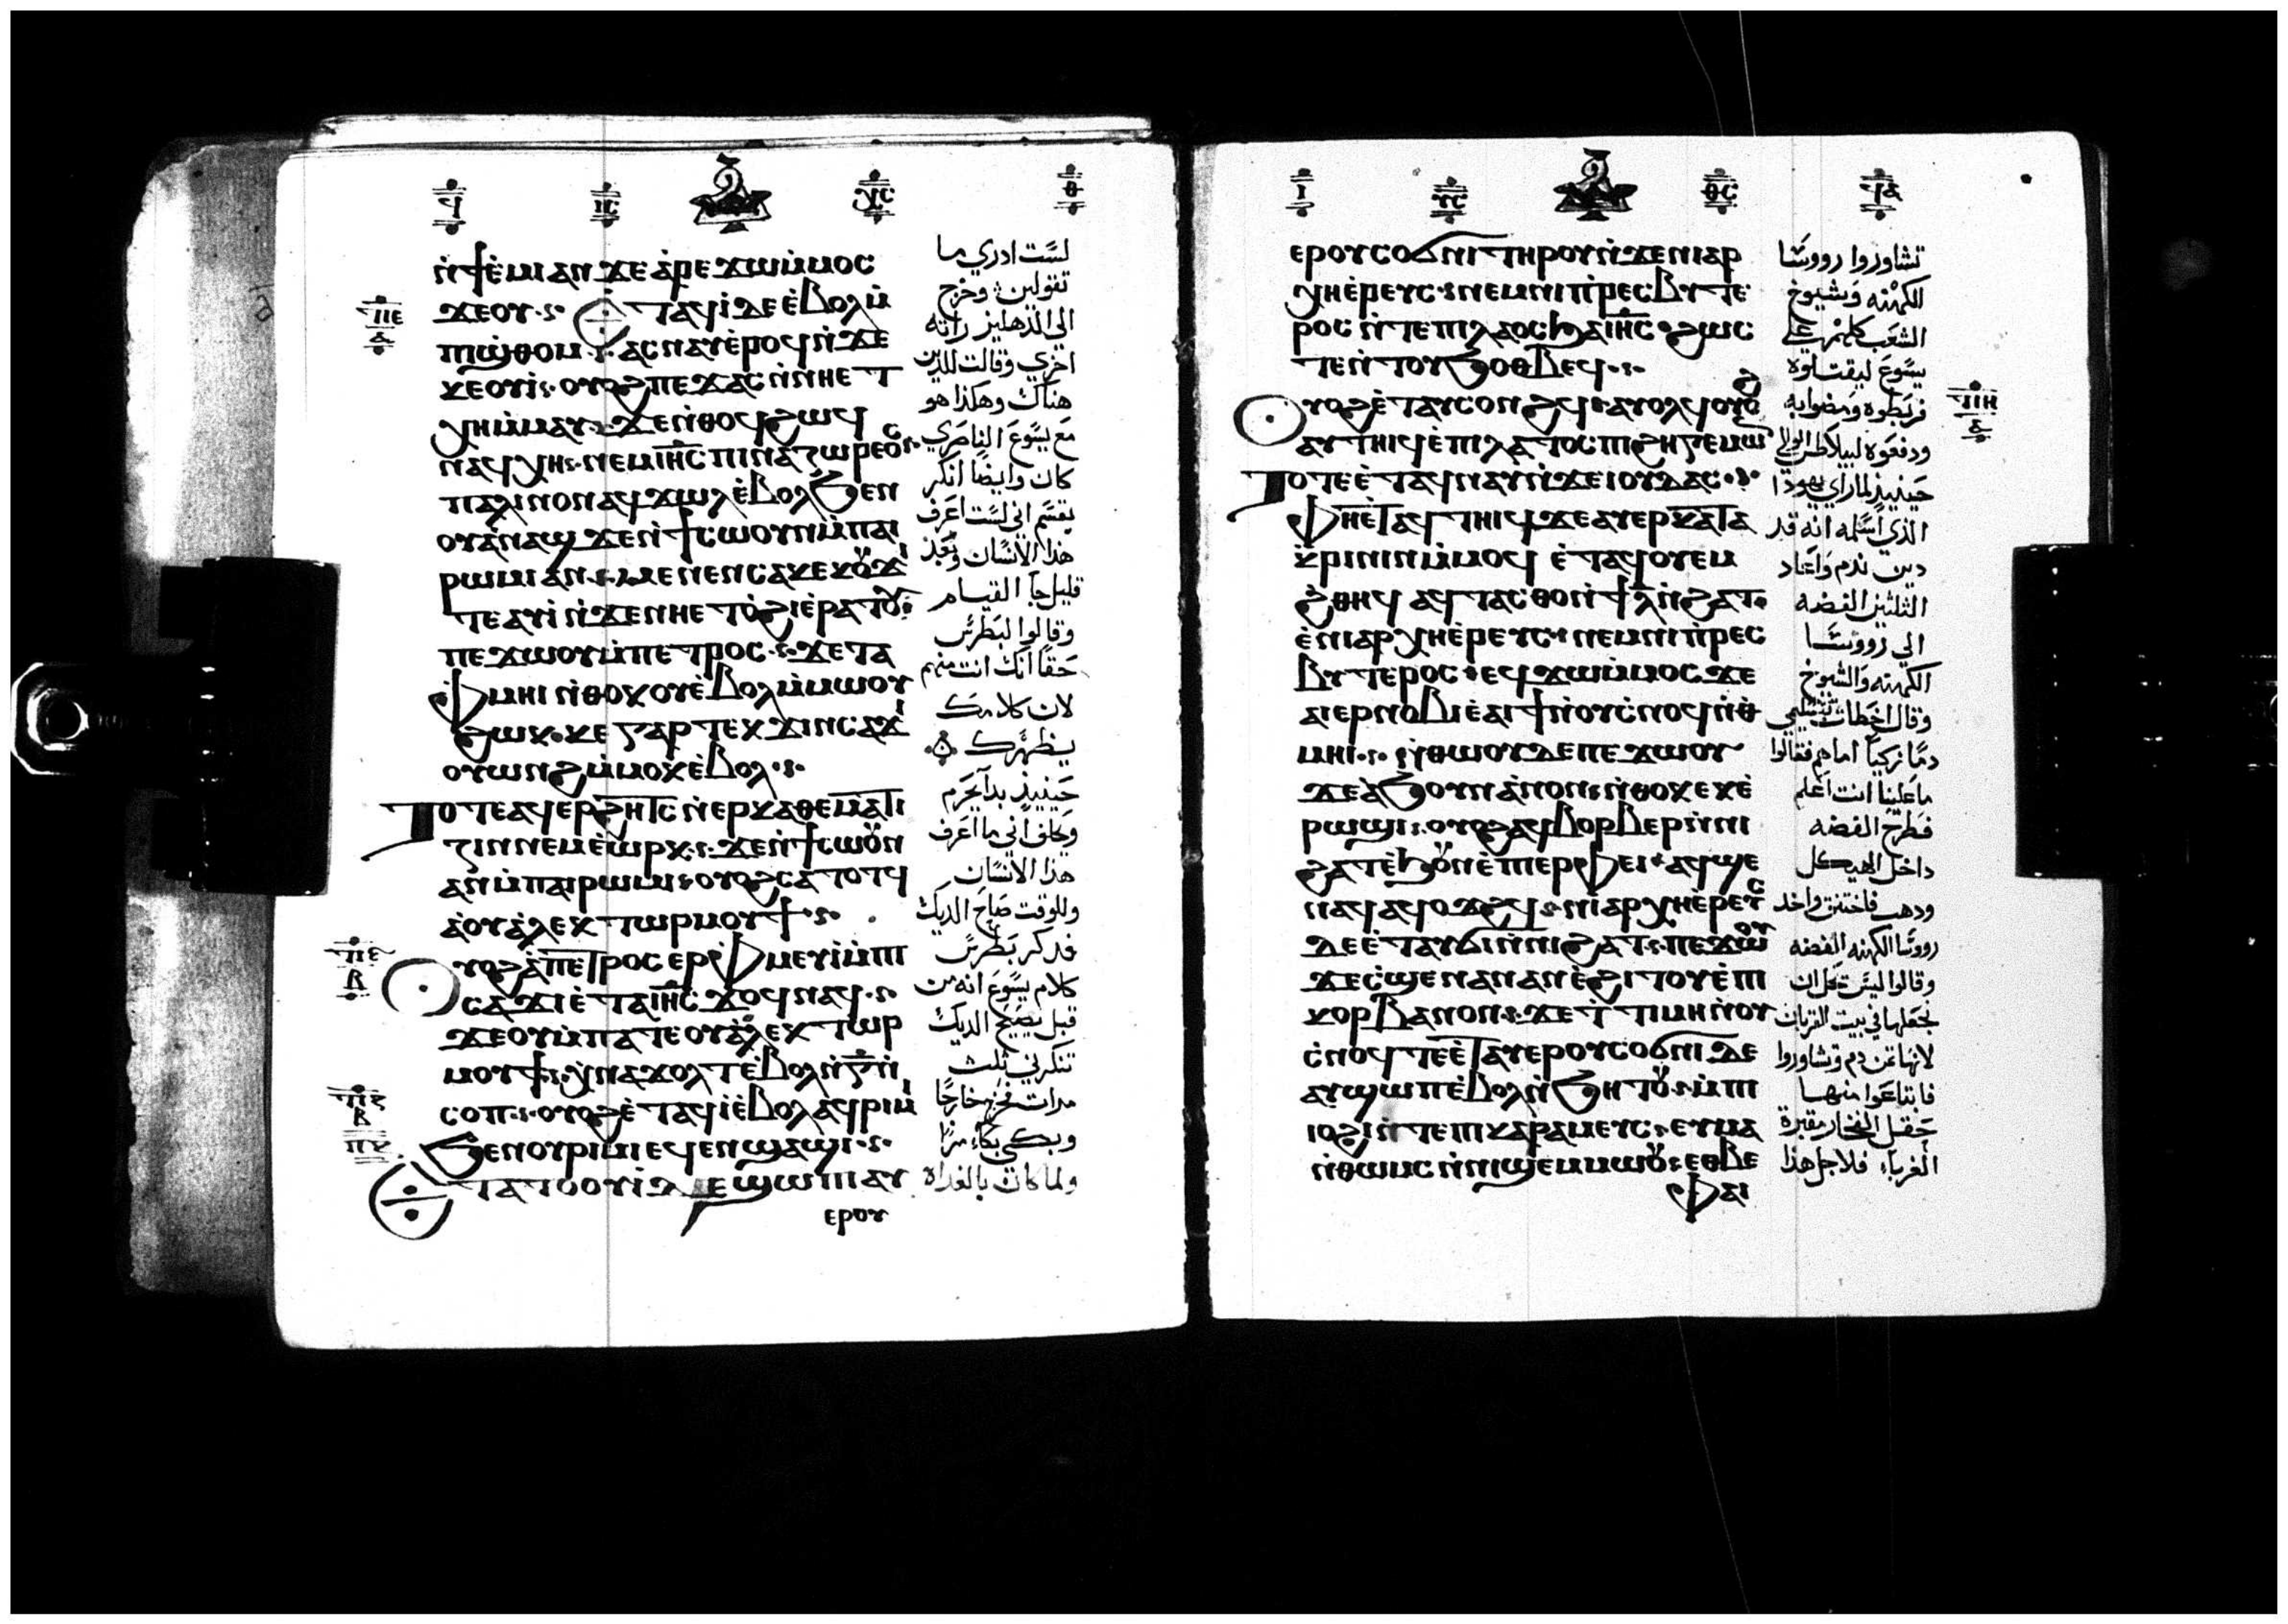 ϥ ⲓⲥ ⲭⲥ ⲑ
ⲛ̀ϯⲉ̀ⲙⲓ ⲁⲛ ϫⲉ ⲁ̀ⲣⲉϫⲱ ⲙ̀ⲙⲟⲥ
ϫⲉⲟⲩ ⲉⲧⲁϥⲓ ⲇⲉ ⲉ̀ⲃⲟⲗ ⲙ̀
ⲡⲓⲱ̀ⲑⲟⲙ ⲁⲥⲛⲁⲩ ⲉ̀ⲣⲟϥ ⲛ̀ϫⲉ
ⲕⲉⲟⲩⲓ̀ ⲟⲩⲟϩ ⲡⲉϫⲁⲥ ⲛ̀ⲛⲏⲉⲧ
ⲭⲏ ⲙ̀ⲙⲁⲩ ϫⲉ ⲛ̀ⲑⲟϥ ϩⲱϥ
ⲛⲁϥⲭⲏ ⲛⲉⲙ ⲓⲏ̅ⲥ̅ ⲡⲓⲛⲁⲍⲱⲣⲉⲟⲥ
ⲡⲁⲗⲓⲛ ⲟⲛ ⲁϥϫⲱⲗ ⲉ̀ⲃⲟⲗ ϧⲉⲛ
ⲟⲩⲁ̀ⲛⲁϣ ϫⲉ ⲛ̀ϯⲥⲱⲟⲩⲛ ⲙ̀ⲡⲁⲓ
ⲣⲱⲙⲓ ⲁⲛ ⲙⲉⲛⲉⲛⲥⲁ ⲕⲉⲕⲟⲩϫⲓ
ⲇⲉ ⲁⲩⲓ̀ ⲛ̀ϫⲉ ⲛⲏⲉⲧⲟ̀ϩⲓ ⲉ̀ⲣⲁⲧⲟⲩ
ⲡⲉϫⲱⲟⲩ ⲙ̀ⲡⲉⲧⲣⲟⲥ ϫⲉ ⲧⲁ
ⲫⲙⲏⲓ ⲛ̀ⲑⲟⲕ ⲟⲩⲉ̀ⲃⲟⲗ ⲙ̀ⲙⲱⲟⲩ
ϩⲱⲕ ⲕⲉ ⲅⲁⲣ ⲧⲉⲕϫⲓⲛⲥⲁϫⲓ
ⲟⲩⲱⲛϩ ⲙ̀ⲙⲟⲕ ⲉ̀ⲃⲟⲗ
ⲧⲟⲧⲉ ⲁϥⲉⲣϩⲏⲧⲥ ⲛ̀ⲉⲣⲕⲁⲑⲉⲙⲁⲧⲓ
ⲍⲓⲛ ⲛⲉⲙ ⲉ̀ⲱⲣⲕ ϫⲉ ⲛ̀ϯⲥⲱⲟⲩⲛ
ⲁⲛ ⲙ̀ⲡⲁⲓⲣⲱⲙⲓ ⲟⲩⲟϩ ⲥⲁⲧⲟⲧϥ
ⲁ̀ ⲟⲩⲁ̀ⲗⲉⲕⲧⲱⲣ ⲙⲟⲩϯ
ⲟⲩⲟϩ ⲁ̀ ⲡⲉⲧⲣⲟⲥ ⲉⲣⲫⲙⲉⲩⲓ̀ ⲙ̀ⲡⲓ
ⲥⲁϫⲓ ⲉ̀ⲧⲁ ⲓⲏ̅ⲥ̅ ϫⲟϥ ⲛⲁϥ
ϫⲉ ⲟⲩⲙ̀ⲡⲁⲧⲉ ⲟⲩⲁ̀ⲗⲉⲕⲧⲱⲣ
ⲙⲟⲩϯ ⲭⲛⲁϫⲟⲗⲧ ⲉ̀ⲃⲟⲗ ⲛ̀ⲅ̅ ⲛ̀
ⲥⲟⲡ ⲟⲩⲟϩ ⲉ̀ⲧⲁϥⲓ̀ ⲉ̀ⲃⲟⲗ ⲁϥⲣⲓⲙⲓ
ϧⲉⲛ ⲟⲩⲣⲓⲙⲓ ⲉϥⲉⲛϣⲁϣⲓ
ⲉⲧⲁ ⲧⲟⲟⲩⲓ̀ ⲇⲉ ϣⲱⲡⲓ ⲁⲩ
ⲉⲣⲟⲩ
لست ادري ما
تقولين وخرج
الى الدهليز راته
اخري وقالت للذين
هناك وهكذا هو
مع يسوع الناصري
كان وايضا انكر
بقسم اني لست اعرف
هذا الانسان وبعد
قليل جآ القيام
وقالوا لبطرس
حقا انك انت منهم
لان كلامك
يظهرك
حينيذ بدا يحرم
ويحلف اني ما اعرف
هذا الانسان
وللوقت صاح الديك
فدكر بطرس
كلام يسوع انه من
قبل يصيح الديك
تنكرني ثلث
مرات فخرج خارجا
وبكى بكاء مرا
ولما كان بالغداه
ⲓ ⲩⲥ ⲑⲥ ϥⲁ
ⲉⲣⲟⲩⲥⲟϭⲛⲓ ⲧⲏⲣⲟⲩ ⲛ̀ϫⲉ ⲛⲓⲁⲣ
ⲭⲏⲉ̀ⲣⲉⲩⲥ ⲛⲉⲙ ⲛⲓⲡ̀ⲣⲉⲥⲃⲩⲧⲉ
ⲣⲟⲥ ⲛ̀ⲧⲉ ⲡⲓⲗⲁⲟⲥ ϧⲁ ⲓⲏ̅ⲥ̅ ϩⲱⲥ
ⲧⲉ ⲛ̀ⲧⲟⲩϧⲟⲑⲃⲉϥ
ⲟⲩⲟϩ ⲉ̀ⲧⲁⲩⲥⲟⲛϩϥ ⲁⲩⲟⲗϥ ⲟⲩⲟϩ
ⲁⲩⲧⲏⲓϥ ⲉ̀ⲡⲓⲗⲁⲧⲟⲥ ⲡⲓϩⲏⲅⲉⲙⲱⲛ
ⲧⲟⲧⲉ ⲉ̀ⲧⲁϥⲛⲁⲩ ⲛ̀ϫⲉ ⲓⲟⲩⲇⲁⲥ
ⲫⲏⲉⲧⲁϥⲧⲏⲓϥ ϫⲉ ⲁⲩⲉⲣⲕⲁⲧⲁ
ⲕⲣⲓⲛⲓⲛ ⲙ̀ⲙⲟϥ ⲉ̀ⲧⲁϥⲟⲩⲉⲙ
ϩ̀ⲑⲏϥ ⲁϥⲧⲁⲥⲑⲟ ⲛ̀ϯⲗ̅ ⲛ̀ϩⲁⲧ
ⲉ̀ⲛⲓⲁⲣⲭⲏⲉ̀ⲣⲉⲩⲥ ⲛⲉⲙ ⲛⲓⲡ̀ⲣⲉⲥ
ⲃⲩⲧⲉⲣⲟⲥ ⲉϥϫⲱ ⲙ̀ⲙⲟⲥ ϫⲉ
ⲁⲓⲉⲣⲛⲟⲃⲓ ⲉ̀ⲁⲓϯ ⲛ̀ⲟⲩⲥ̀ⲛⲟϥ ⲛ̀ⲑ
ⲙⲏⲓ ⲛ̀ⲑⲱⲟⲩ ⲇⲉ ⲡⲉϫⲱⲟⲩ
ϫⲉ ⲁ̀ϧⲟⲩⲛ ⲁ̀ⲛⲟⲛ ⲛ̀ⲑⲟⲕ ⲉⲕⲉ̀
ⲣⲱϣⲓ ⲟⲩⲟϩ ⲁϥⲃⲟⲣⲃⲉⲣ ⲛ̀ⲛⲓ
ϩⲁⲧ ⲉ̀ϧⲟⲩⲛ ⲉ̀ⲡⲉⲣⲫⲉⲓ ⲁϥϣⲉ
ⲛⲁϥ ⲁϥⲟϫϩϥ ⲛⲓⲁⲣⲭⲏⲉ̀ⲣⲉⲩⲥ
ⲇⲉ ⲉ̀ⲧⲁⲩϭⲓ ⲛ̀ⲛⲓϩⲁⲧ ⲡⲉϫⲱⲟⲩ
ϫⲉ ⲥ̀ϣⲉ ⲛⲁⲛ ⲁⲛ ⲉ̀ϩⲓⲧⲟⲩ ⲉ̀ⲡⲓ
ⲕⲟⲣⲃⲁⲛⲟⲛ ϫⲉ ⲧ̀ⲧⲓⲙⲏ ⲛ̀ⲟⲩ
ⲥ̀ⲛⲟϥ ⲧⲉ ⲉ̀ⲧⲁⲩⲉⲣⲟⲩⲥⲟϭⲛⲓ ⲇⲉ
ⲁⲩϣⲱⲡ ⲉ̀ⲃⲟⲗ ⲛ̀ϧⲏⲧⲟⲩ ⲙ̀ⲡⲓ
ⲓⲟϩⲓ ⲛ̀ⲧⲉ ⲡⲓⲕⲁⲣⲁⲙⲉⲩⲥ ⲉⲩⲙⲁ
ⲛ̀ⲑⲱⲙⲥ ⲛ̀ⲛⲓϣⲉⲙⲙⲱⲟⲩ ⲉⲑⲃⲉ
ⲫⲁⲓ
تشاوروا رووسا
الكهنه وشيوخ
الشعب كلهم على
يسوع ليقتلوه
فربطوه ومضوا به
ودفعوه لبيلاطس الوالي
حينيذ لما راي يهودا
الذي اسلمه انه قد
دين ندم واعاد
الثلثين الفضه
الي رووسا
الكهنه والشيوخ
وقال اخطات بتسليمي
دما زكيا امامهم فقالوا
ما علينا انت اعلم
فطرح الفضه
داخل الهيكل
ودهب فاختنق واخد
رووسا الكهنه الفضه
وقالوا ليس يحل ان
نجعلها في بيت القربان
لانها ثمن دم وتشاوروا
فابتاعوا منها
حقل الفخار مقبرة
الغرباء فلاجل هذا